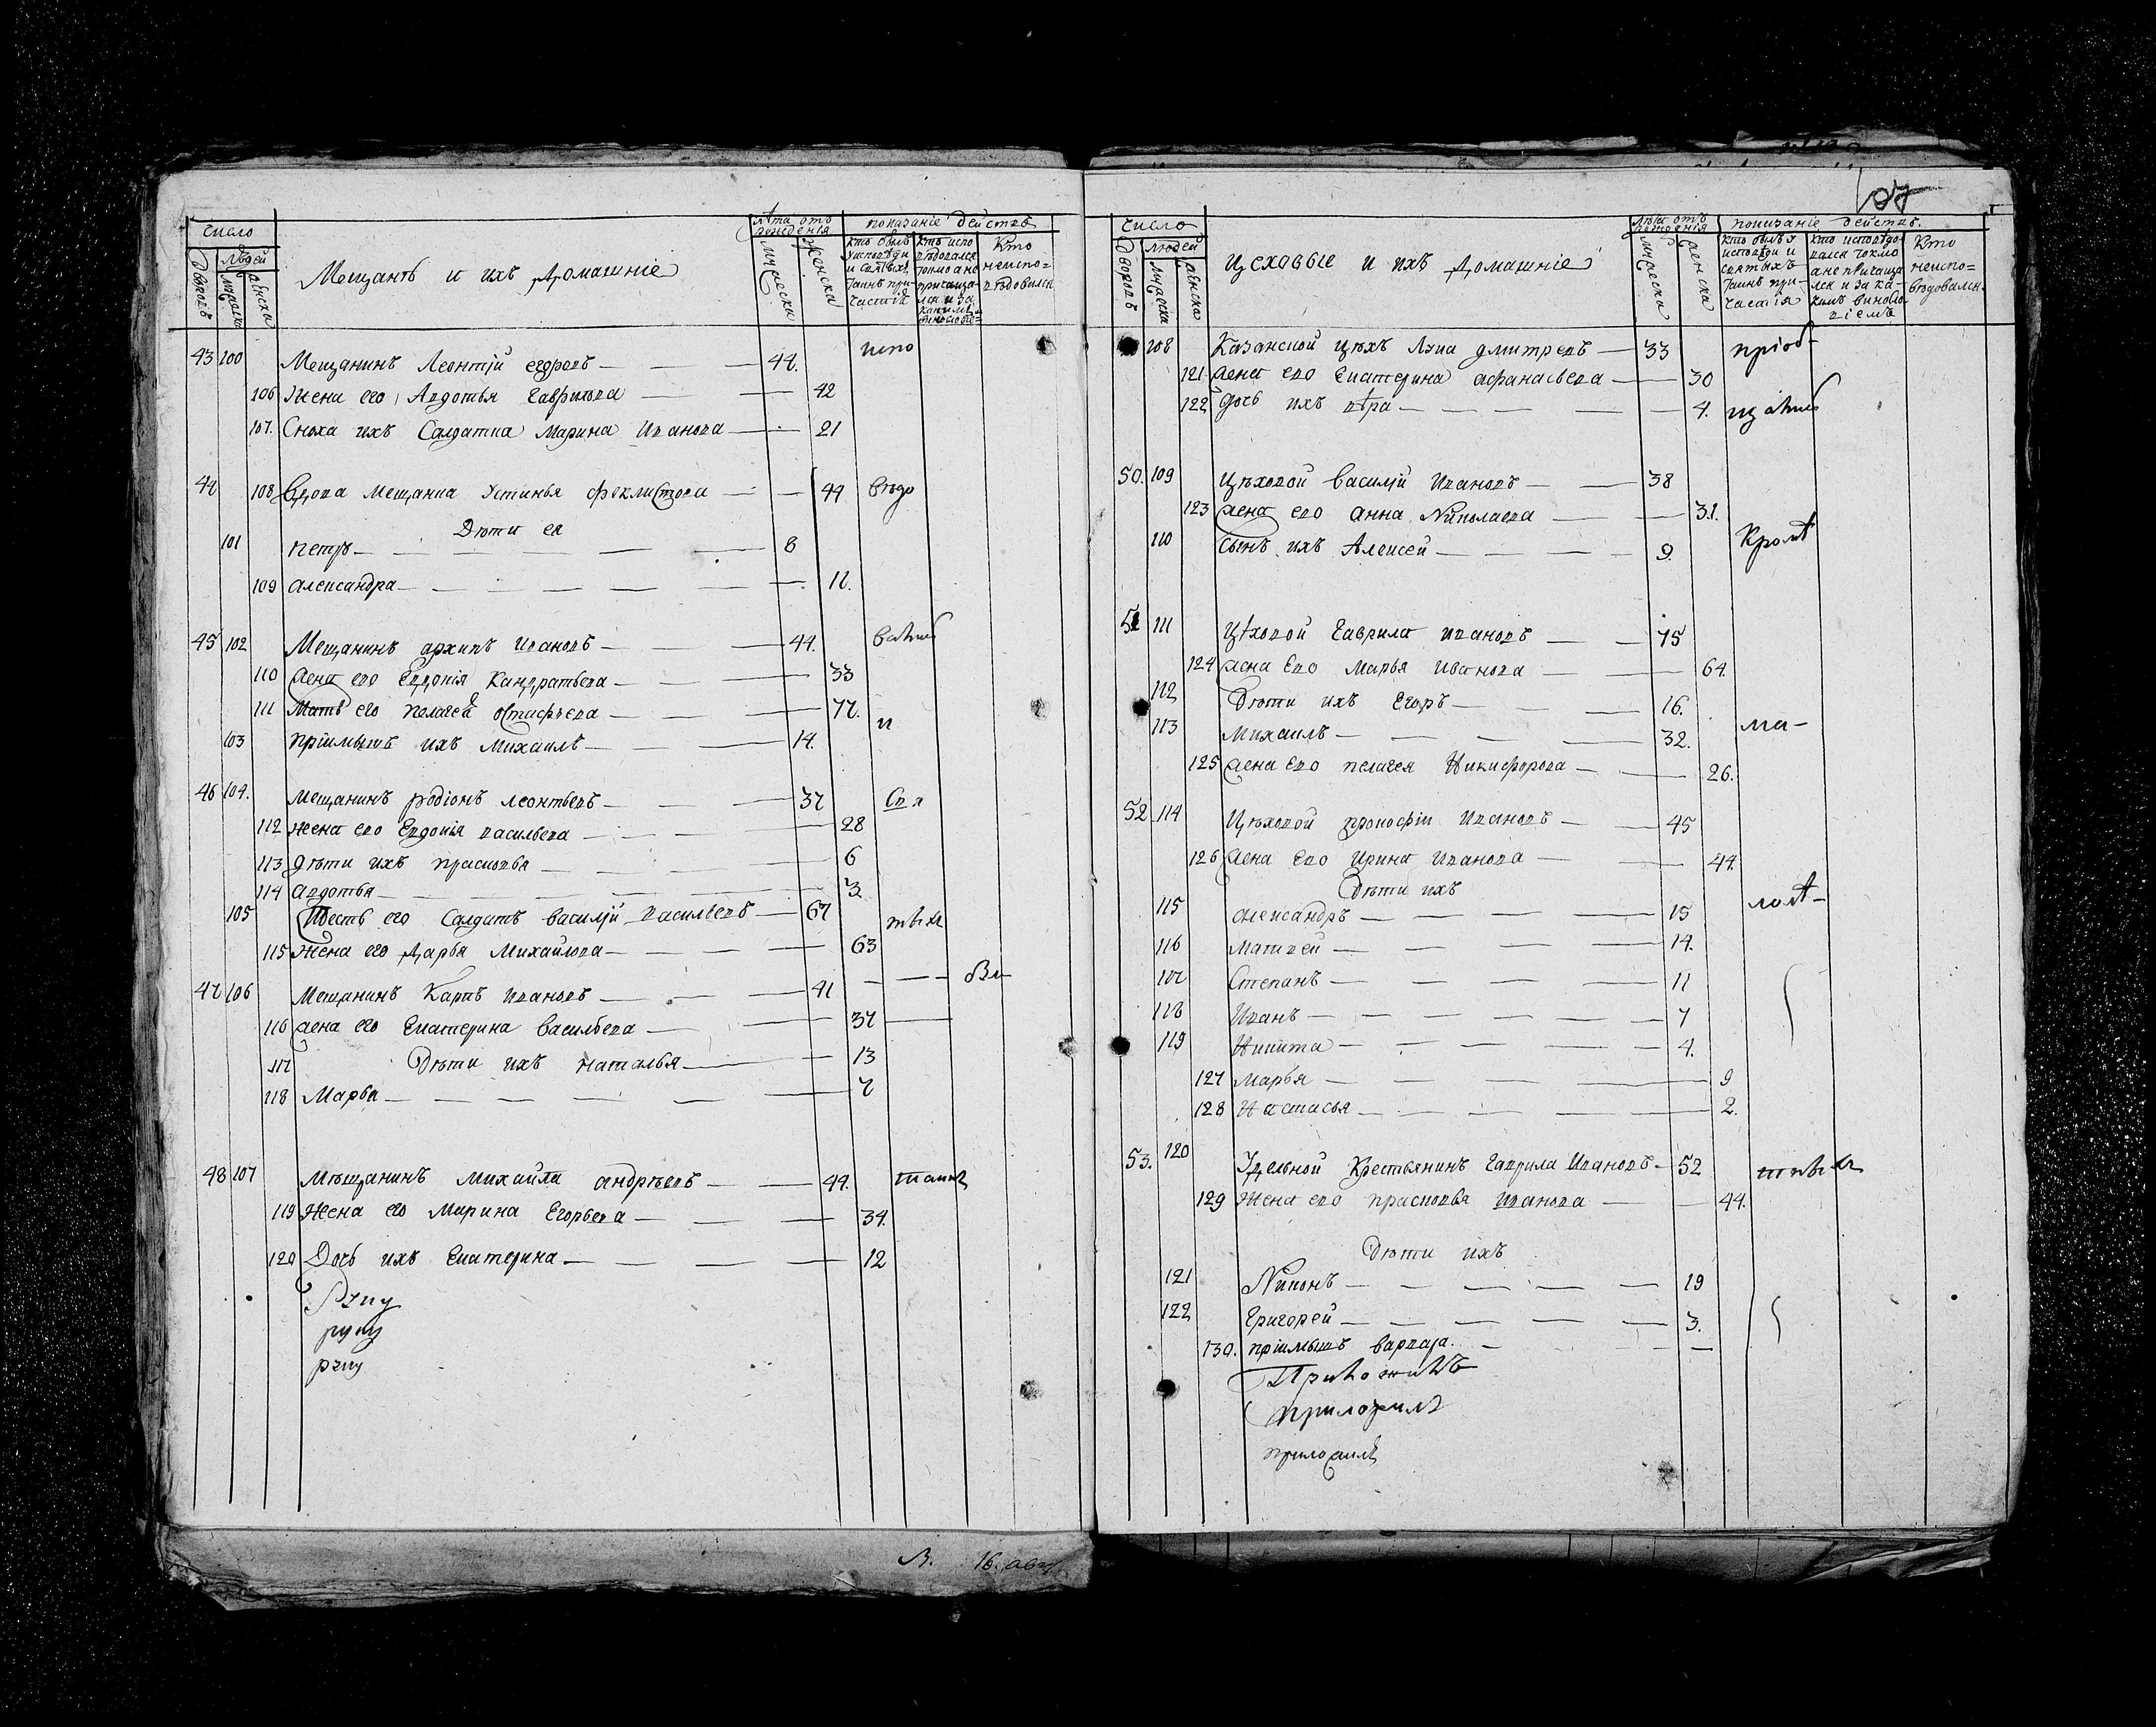 число
людей
дворовъ
мужеска
женска
Мещанѣ и ихъ домашніе
лѣта отъ рожденія
мужеска
женска
показаніе действъ
кто былъ у исповѣди и святыхъ таинъ при-
частія
Кто
неиспо=
вѣдовался
43 100 Мещанинъ Леонтій егоровъ 44.
испо
106 Жена его Авдотья Гаврилова 42
107. Сноха ихъ Салдатка Марина Иванова 21
44 108 Вдова мещанка Устинья феклистова 44 вѣдо
Дѣти ея
101 петръ 8
109 александра 11.
45 102 Мещанинъ архипъ Ивановъ 44.
110 жена его Евдокія Кандратьева 33
111 Мать его пелагея Остафьева 77.
и
103 пріимышъ ихъ михаилъ 14.
46 104. Мещанинъ родіонъ леонтьевъ 37 Свя
112 жена его Евдокія васильева 28
113 дѣти ихъ прасковья 6
114 авдотья 3
105 Тесть его Салдатъ василій васильевъ 67
тыхъ
115 жена его Дарья Михайлова 63
47 106 Мещанинъ Карпъ Ивановъ 41
116 жена его Екатерина Васильева 37
117 Дѣти ихъ наталья 13
118 Марья 7
48 107 Мѣщанинъ Михайла андрѣевъ 44. таинъ
119 Жена его Марина Егорьева 34.
120 Дочь ихъ Екатерина 12
руку
руку
руку
16. авгу
107
число
людей
дворовъ
мужеска
женска
цеховые и ихъ домашніе
лѣта отъ рожденія
мужеска
женска
показаніе действъ.
кто былъ у
исповѣди и
святыхъ
таинъ при-
частія
кто исповѣдо-
вался токмо
а не причаща
лся и за ка-
кимъ виносло-
віемъ
Кто
неиспо=
вѣдовался
108 Казанской цѣхъ Лука дмитревъ 33 пріоб-
121 жена его Екатерина афанасьева 30
122 дочь ихъ вѣра 4.
50. 109 Цѣховой василій Ивановъ 38
123 жена его анна Николаева 31.
110 сынъ ихъ Алексей 9.
51 111 Цѣховой Гаврила ивановъ 75
124 жена его Марья Иванова 64.
112 Дѣти ихъ Егоръ 16.
113 Михаилъ 32.
ма-
125 жена его пелагея Никифорова 26.
52 114 Цѣховой прокофіи Ивановъ 45
126 жена его Ирина Иванова 44.
Дѣти ихъ
115 александръ 15
116 Матвей 14.
117 Степанъ 11
118 Иванъ 7
119 Никита 4.
127 Марья 9
128 Настасья 2.
53. 120 Удельной Крестьянинъ Гаврила Ивановъ 52
129 Жена его прасковья Иванова 44.
Дѣти ихъ
121 Никонъ 19
122 Григорей 3.
130. пріимышъ варвара.
Приложилъ
приложилъ
приложилъ